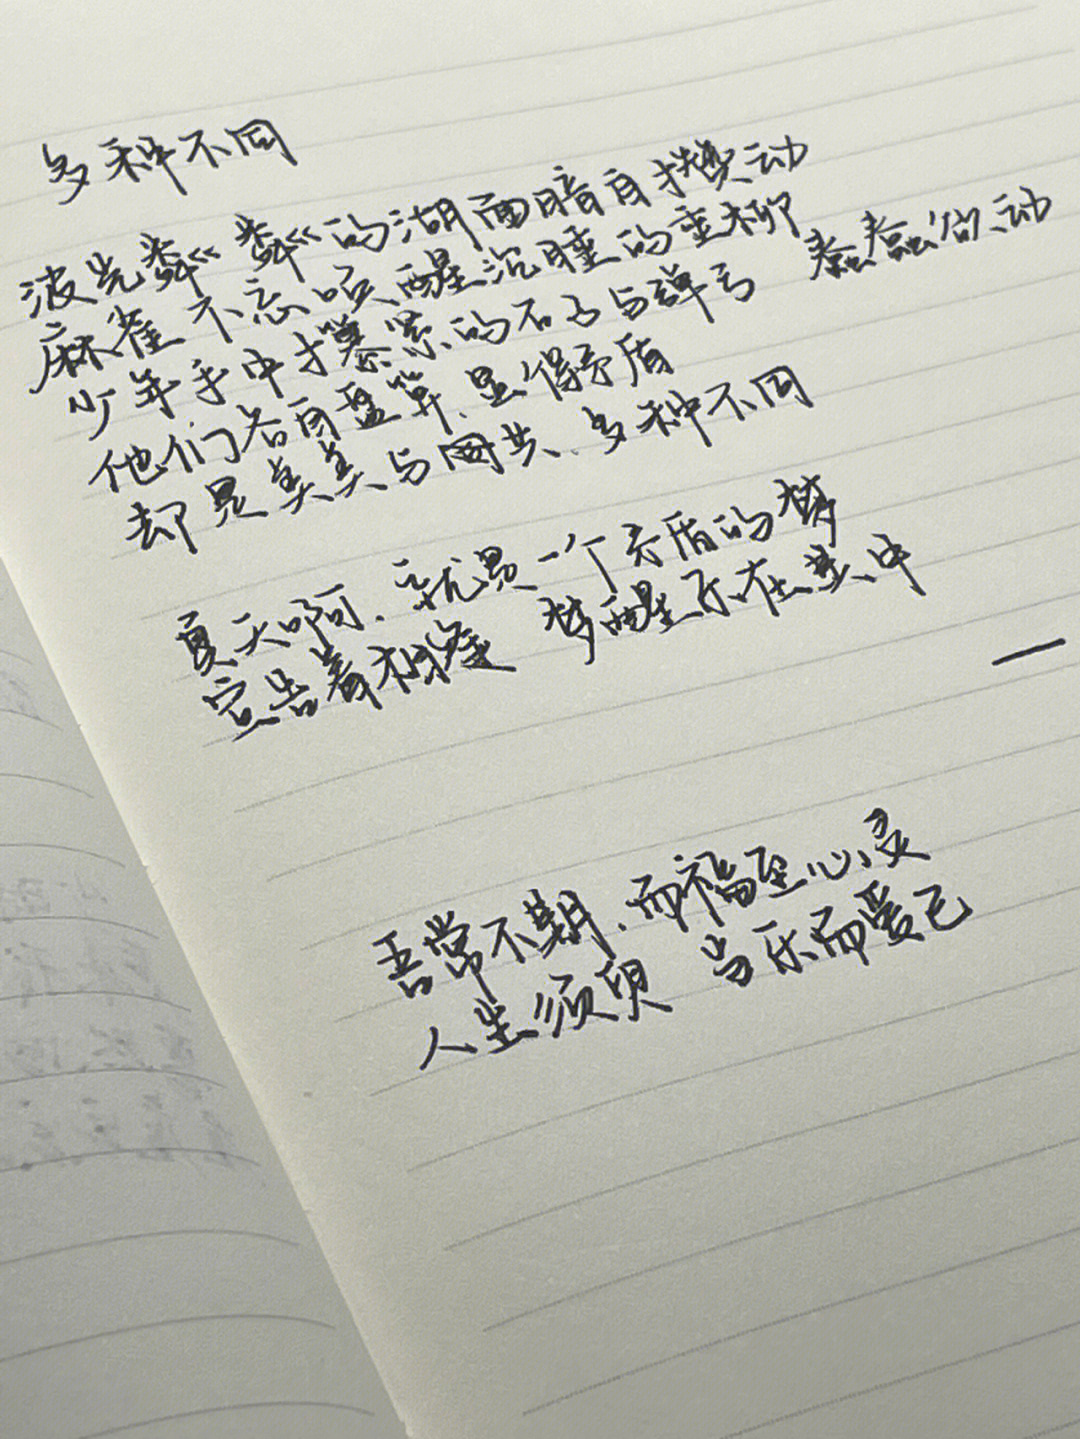 多种不同
波光粼粼的湖面暗自搅动
麻雀 不忘唤醒沉睡的垂柳
少年手中攥紧的石子与弹弓 蠢蠢欲动
他们各自盘算、显得矛盾
却是美美与共、多种不同
夏天啊、就是一个矛盾的梦
宣告着相逢 梦醒乐在其中
一
吾常不期、而福至心灵
人生须臾 当乐而爱己